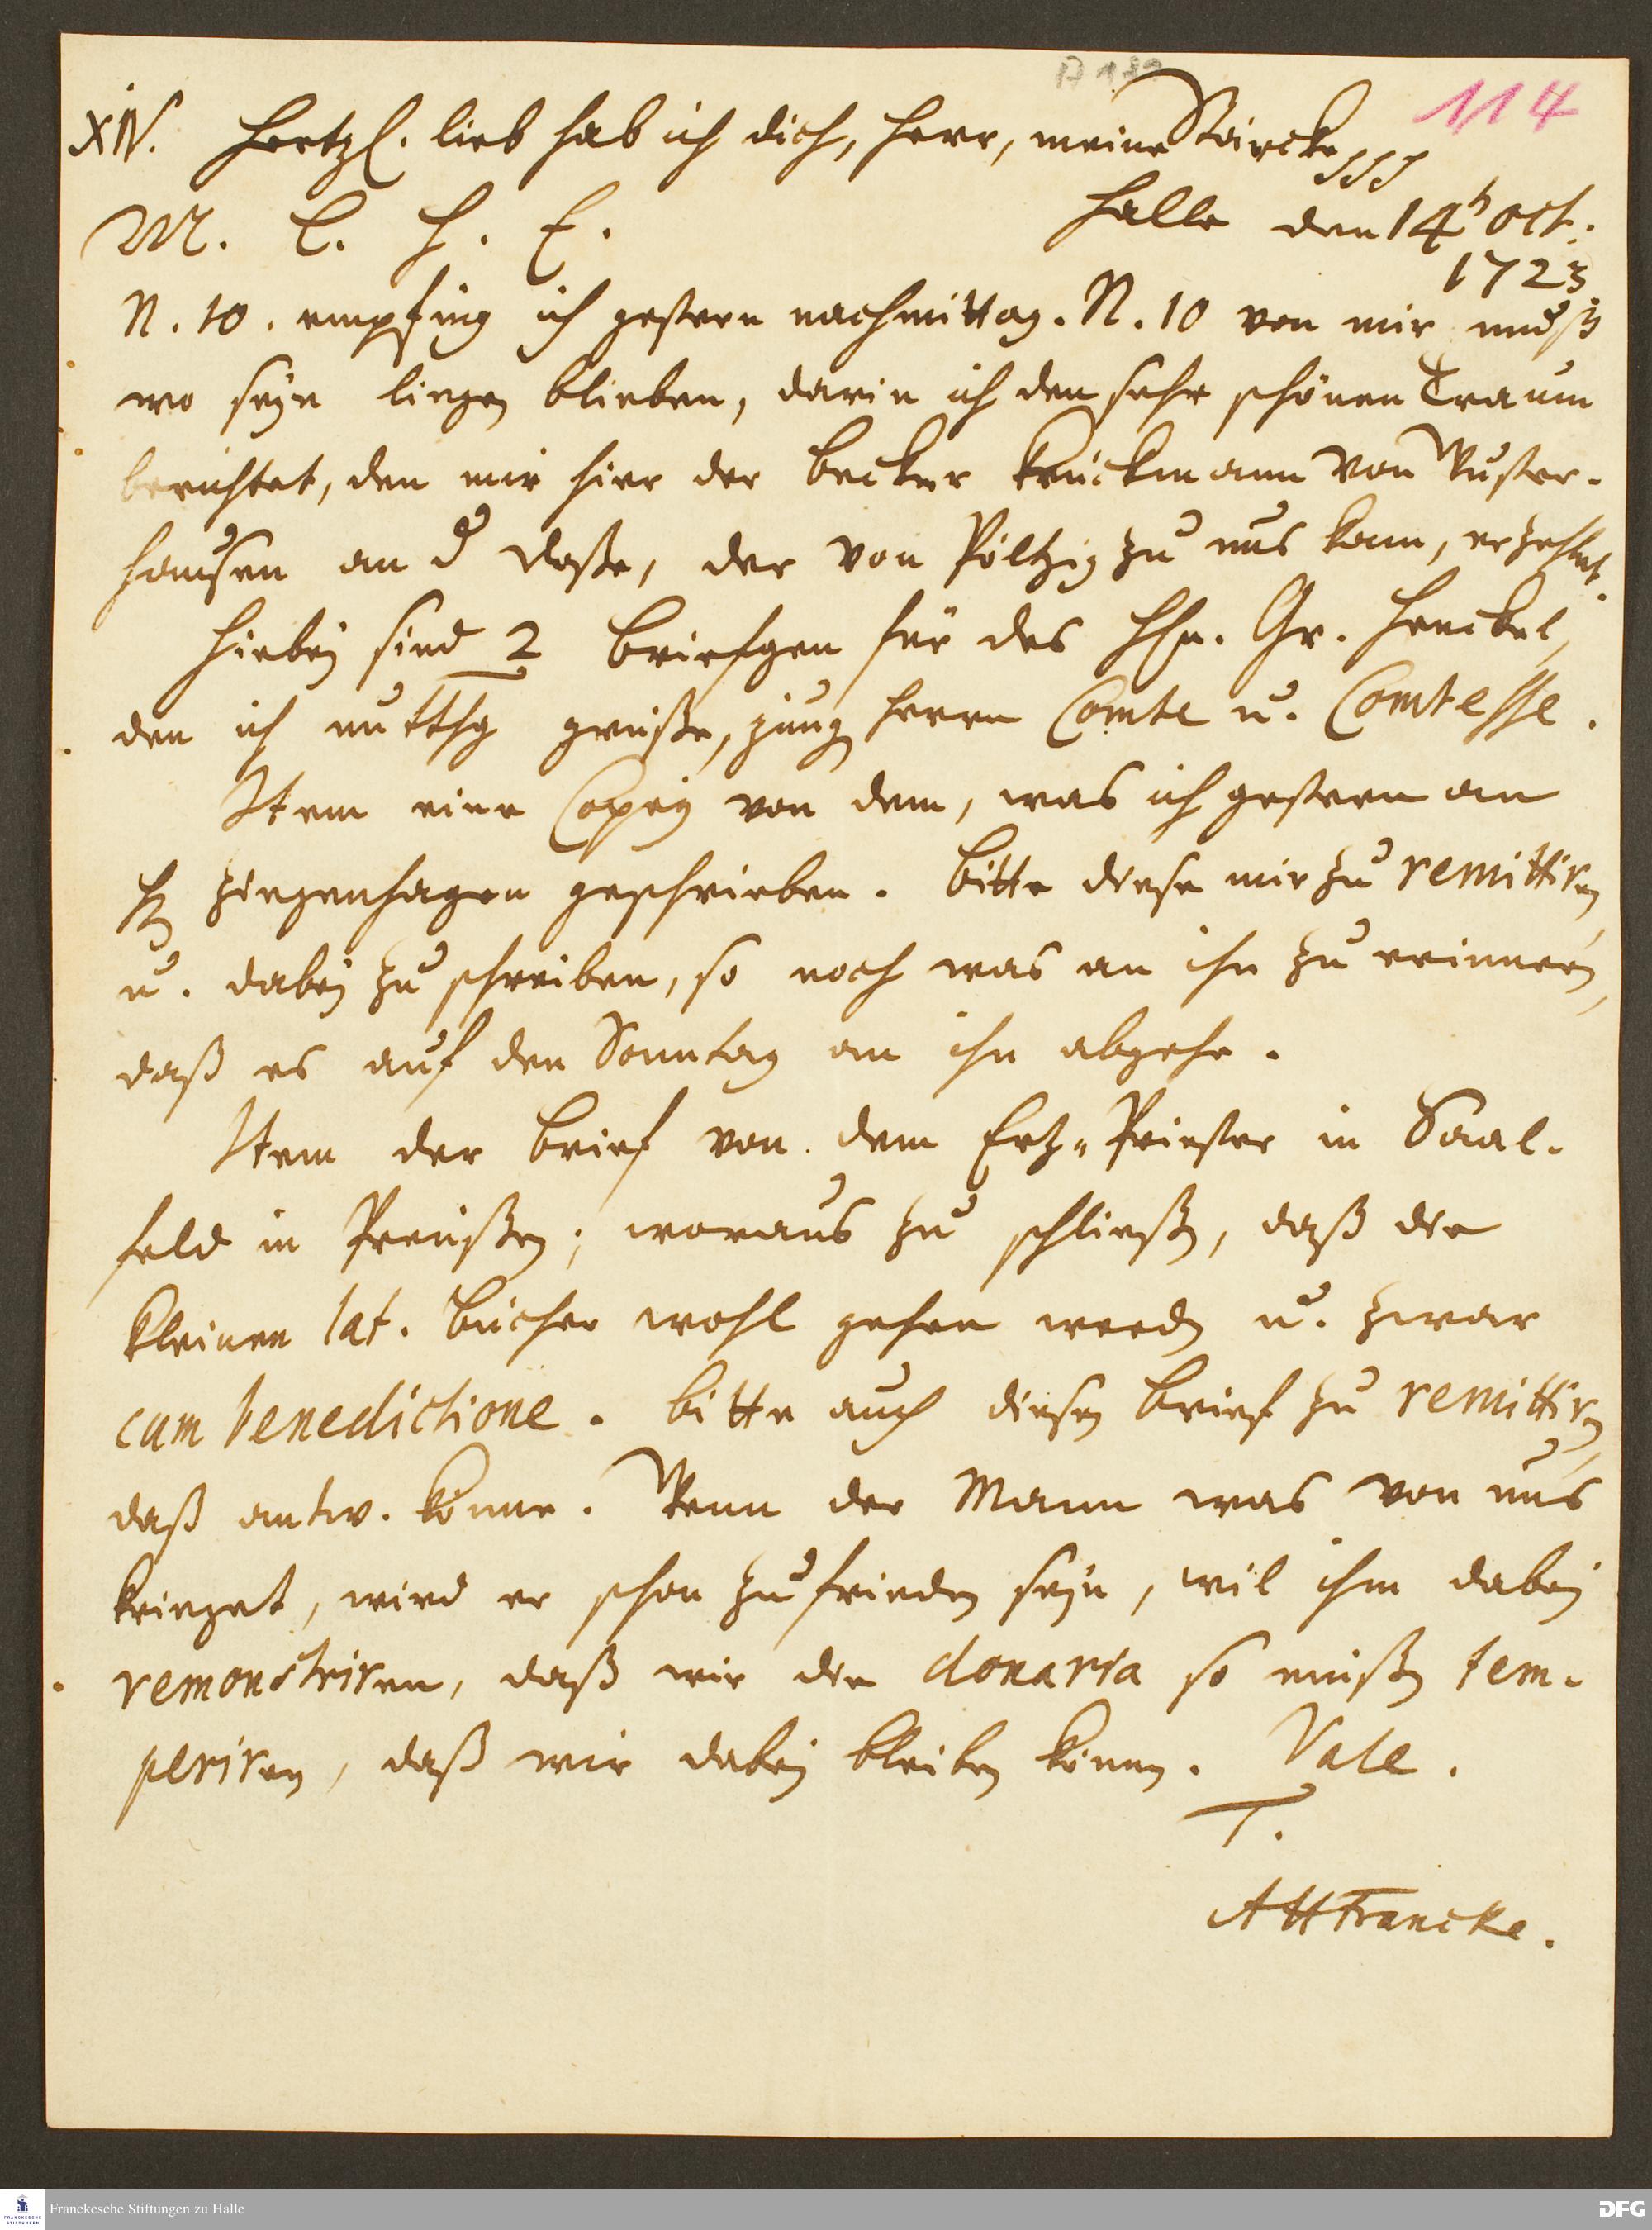 114
XIV. Hertzl. lieb hab ich dich, Herr, meine Stärcke
M. L. H. E. Halle den 14 Oct.
1723
N. 10. empfing ich gestern nachmittag. N. 10 von mir muß
wo seyn liegen blieben, darin ich den sehr schönen Traum
berichtet, den mir hier der Becker Krückmann von Wuster-
hausen an d Doße, der von Pöltzig zu uns kam, erzehlet.
Hiebey sind 2 Briefgen für des HEn. Gr. Henckel,
den ich grüße, jung Herrn Comte u. Comtesse.
Item eine Copey von dem, was ich gestern an
H Ziegenhagen geschrieben. Bitte diese mir zu remittiren,
u. dabey zu schreiben, so noch was an ihn zu erinnern,
daß es auf den Sonntag an ihn abgehe.
Item der Brief von dem Ertz-Priester in Saal-
feld in Preußen; woraus zu schließen, daß die
kleinen lat. Bücher wohl gehen werden u. zwar
cum benedictione. Bitte auch diesen Brief zu remittiren,
daß antw. könne. Wenn der Mann was von uns
krieget, wird er schon zufrieden seyn, wil ihm dabey
remonstriren, daß wir die donaria so müßen tem-
periren, daß wir dabey bleiben können. Vale.
T.
AHFrancke.
Franckesche Stiftungen zu Halle
DFG